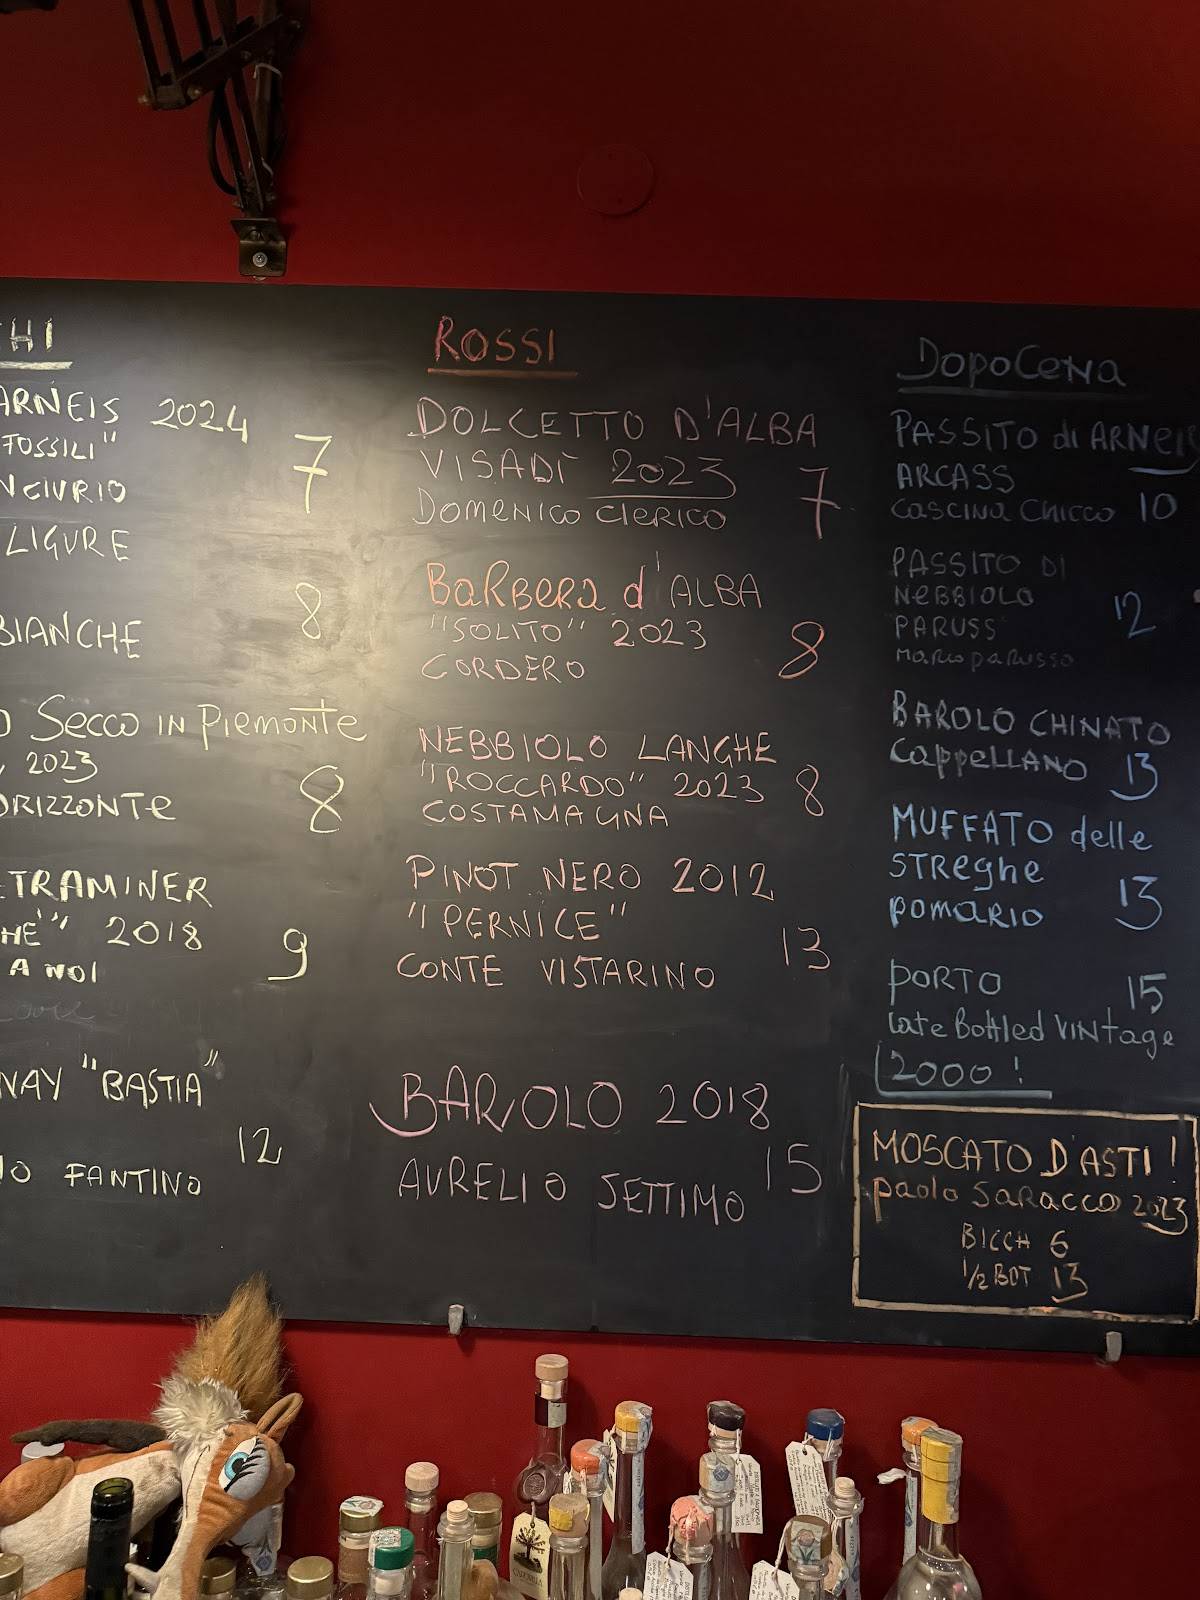 HI
ARNEIS 2024
FOSSILI" 7
NCIURIO
LIGURE
8
BIANCHE
O Secco IN PIEMONTE
2023
ORIZZONTE 8
ETRAMINER
HÉ" 2018
A NOI 9
NAY "BASTIA"
12
IO FANTINO
ROSSI
DOLCETTO D'ALBA
VISADÌ 2023 7
DOMENICO CLERICO
BARBERA d'ALBA
"SOLITO" 2023
CORDERO 8
NEBBIOLO LANGHE
"ROCCARDO" 2023 8
COSTAMAGNA
PINOT NERO 2012
"I PERNICE"
CONTE VISTARINO 13
BAROLO 2018
AURELIO SETTIMO 15
DOPOCENA
PASSITO di ARNEIS
ARCASS
CASCINA CHICCO 10
PASSITO DI
NEBBIOLO 12
PARUSS
MARCO PARUSSO
BAROLO CHINATO
CAPPELLANO 13
MUFFATO delle
STREGHE
POMARIO 13
PORTO 15
Late Bottled VINTAGE
2000!
MOSCATO D'ASTI!
PAOLO SARACCO 2023
BICCH 6
1/2 BOT 13